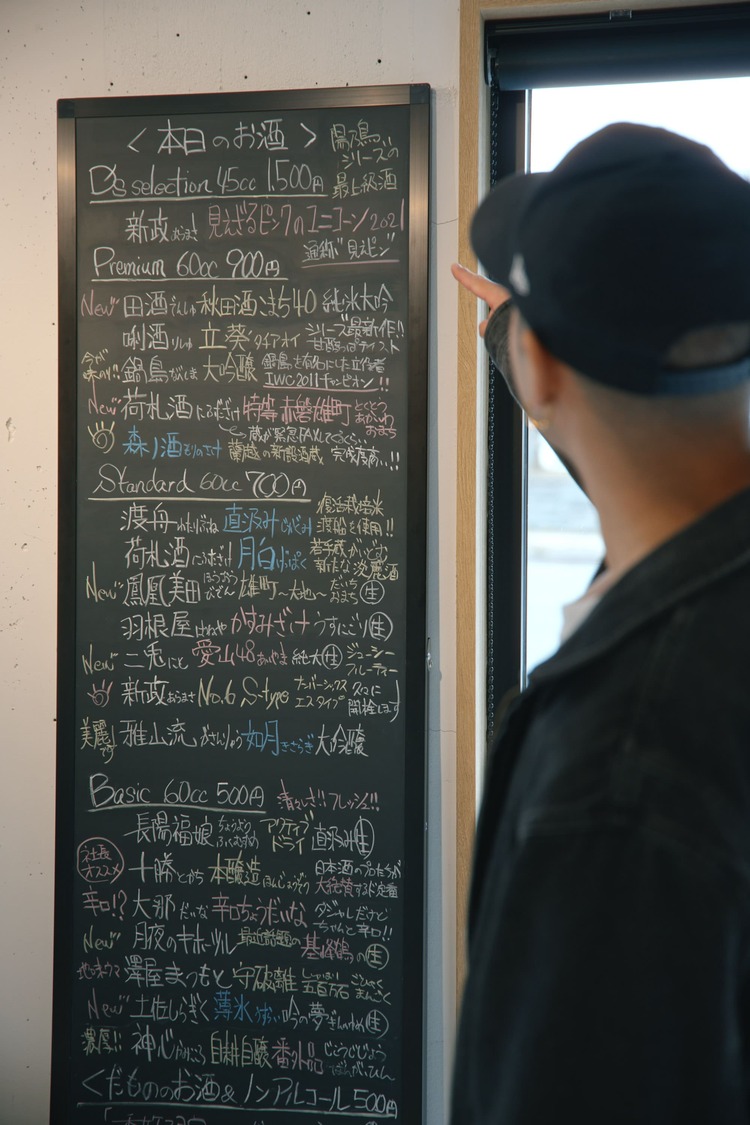 〈本日のお酒〉
陽乃鳥シリーズの最上級酒
D's selection 45cc 1,500円
新政 あらまさ 見えざるピンクのユニコーン 2021
通称"見えピン"
Premium 60cc 900円
New 田酒 でんしゅ 秋田酒こまち40 純米大吟
唎酒 りしゅ 立葵 タチアオイ シリーズ最新作!! 甘酸っぱテイスト
今が味のり!! 鍋島 なべしま 大吟醸 鍋島を有名にした立役者 IWC2011チャンピオン!!
New 荷札酒 にふだざけ 特等 赤磐雄町 とくとう あかいわ おまち
蔵が緊急FAXしてくらい
森ノ酒 もりのさけ 蘭越の新設酒蔵 完成度高い!!
Standard 60cc 700円
渡舟 わたりぶね 直汲み じかぐみ 復活栽培米渡船を使用!!
荷札酒 にふだざけ 月白 げっぱく 若手蔵がいどむ新たな淡麗酒
New 鳳凰美田 ほうおうびでん 雄町〜大地〜 だいちおまち 生
羽根屋 はねや かすみざけ うすにごり 生
New 二兎 にと 愛山48 あいやま 純大 生 ジューシー フルーティー
新政 あらまさ No.6 S-type ナンバーシックス エスタイプ 久々に開栓します
美麗です 雅山流 がさんりゅう 如月 きさらぎ 大吟醸
Basic 60cc 500円 清々しさ!フレッシュ!!
長陽福娘 ちょうようふくむすめ アクティブドライ 直汲み 生
社長オススメ 十勝 とかち 本醸造 ほんじょうぞう 日本酒のプロたちが大絶賛するド定番
辛口!? 大那 だいな 辛口ちょうだいな ダジャレだけどちゃんと辛口!!
New 月夜のキホーツル 最近話題の基峰鶴の 生
地味ウマ 澤屋まつもと 守破離 しゅはり 五百万石 ごひゃくまんごく
New 土佐しらぎく 薄氷 うすらい 吟の夢 ぎんのゆめ 生
濃厚!! 神心 かみこころ 自耕自醸 番外品 じこうじじょう ばんがいひん
〈だもののお酒&ノンアルコール 500円